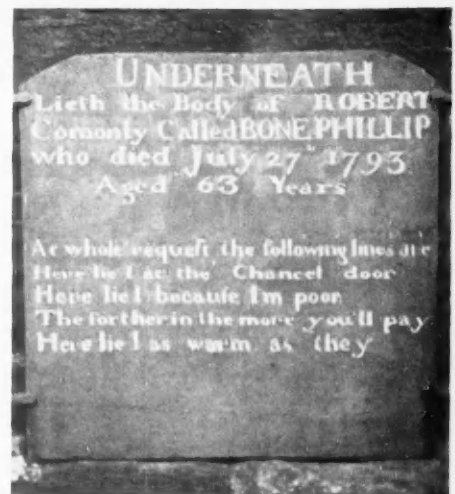 UNDERNEATH
Lieth the Body of ROBERT
Comonly Called BONE PHILLIP
who died July 27th 1793
Aged 63 Years
At whose request the following lines are
Here lie I at the Chancel door
Here lie I because I'm poor
The forther in the more you'll pay
Here lie I as warm as they